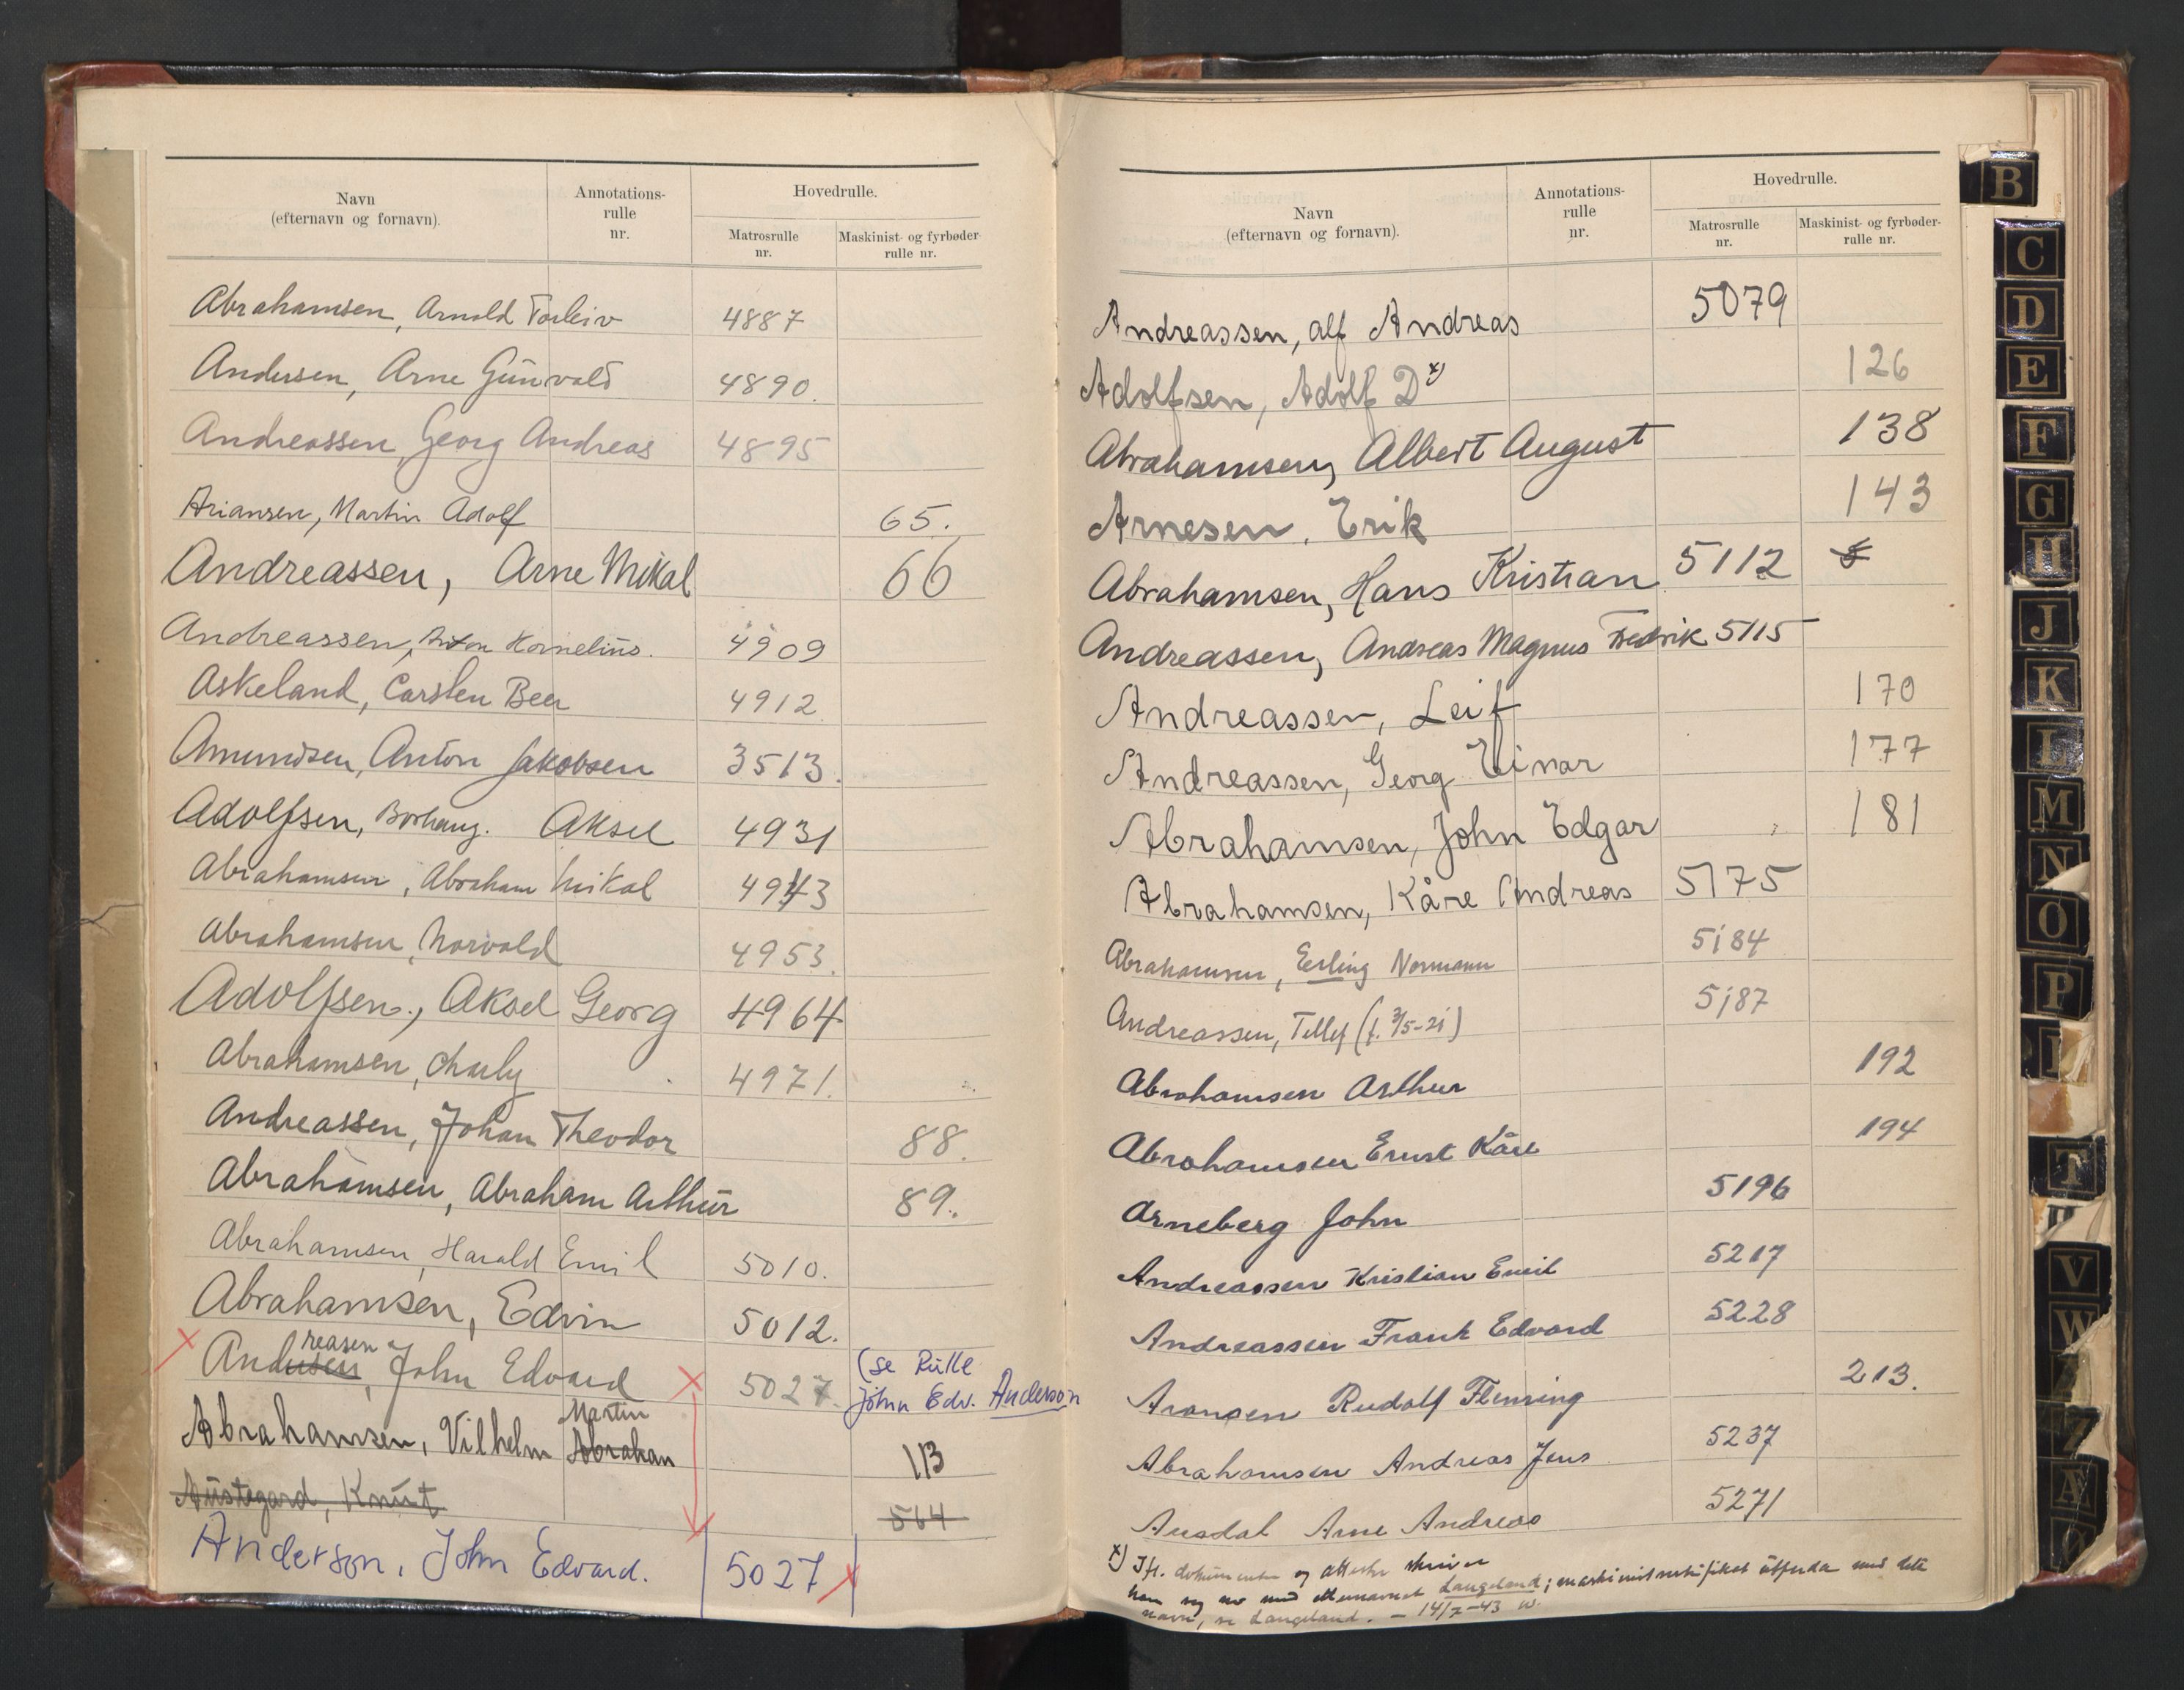 Navn
(efternavn og fornavn).
Annotations-
rulle
nr.
Hovedrulle.
Matrosrulle
nr.
Maskinist- og fyrbøder-
rulle nr.
Abrahamsen, Arnold Torleiv 4887
Andersen, Arne Gunvald 4890.
Andreassen, Georg Andreas 4895
Ariansen, Martin Adolf 65.
Andreassen, Arne Mikal 66
Andreassen, Anton Kornelius. 4909
Askeland, Carsten Beer 4912
Amundsen, Anton Jakobsen 3513.
Adolfsen, Borhaug. Aksel 4931
Abrahamsen, Abraham Mikal 4943
Abrahamsen, Norvald 4953.
Adolfsen, Aksel Georg 4964
Abrahamsen, Charly 4971.
Andreassen, Johan Theodor 88.
Abrahamsen, Abraham Arthur 89.
Abrahamsen, Harald Emil 5010.
Abrahamsen, Edvin 5012.
reasen (se Rulle
x Andersen, John Edvard x 5027. John Edv. Anderson
Martin
Abrahamsen, Vilhelm Abraham 113
Austegard, Knut 564
Anderson, John Edvard. 5027 x
Navn
(efternavn og fornavn).
Annotations-
rulle
nr.
Hovedrulle.
Matrosrulle
nr.
Maskinist- og fyrbøder-
rulle nr.
Andreassen, Alf Andreas 5079
Adolfsen, Adolf D x) 126
Abrahamsen, Albert August 138
Arnesen, Erik 143
Abrahamsen, Hans Kristian 5112
Andreassen, Andreas Magnus Fredrik 5115
Andreassen, Leif 170
Andreassen, Georg Einar 177
Abrahamsen, John Edgar 181
Abrahamsen, Kåre Andreas 5175
Abrahamsen, Erling Normann 5184
Andreassen, Tellef (f. 3/5-21) 5187
Abrahamsen Arthur 192
Abrahamsen Ernst Kåre 194
Arneberg John 5196
Andreassen Kristian Emil 5217
Andreassen Frank Edvard 5228
Aronsen Rudolf Flemming 213.
Abrahamsen Andreas Jens 5237
Ausdal Arne Andreas 5271
x) Ifl. dokumenter og attester skriver
han seg nu med etternavnet Langeland; maskinistsertifikat utferda med dette
navn, se Langeland. - 14/7-43 W.
B
C
D
E
F
G
H
J
K
L
M
N
O
P
T
V
W
Z
Æ
Ø